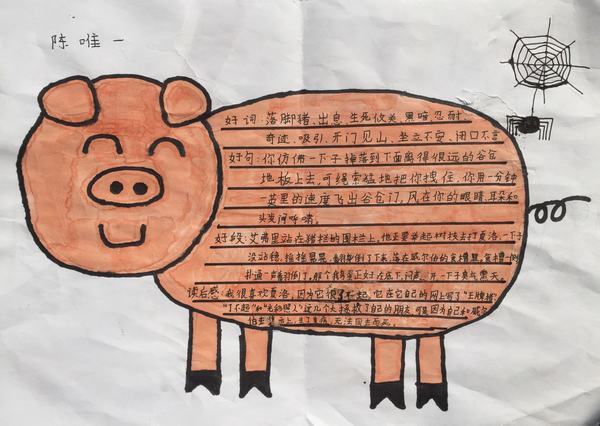 陈唯一
好词：落脚猪、出息、生死攸关、黑暗、忍耐、
奇迹、吸引、开门见山、坐立不安、闭口不言
好句：你仿佛一下子掉落到下面离得很远的谷仓
地板上去，可绳索猛地把你拽住，你用一分钟
一英里的速度飞出谷仓门，风在你的眼睛、耳朵和
头发间呼啸。
好段：艾弗里站在猪栏的围栏上，他正要举起树枝去打夏洛，一下子
没站稳，摇摇晃晃，翻倒了下来，落在威尔伯的食槽里，食槽一侧
扑通一声翻倒了，那个鹅蛋正好在底下，闷声，一下子臭气熏天。
读后感：我很喜欢夏洛，因为它很了不起，它在它自己的网上写了“王牌猪”
“了不起”和“光彩照人”这几个大 拯救了自己的朋友，可是因为自己和威尔